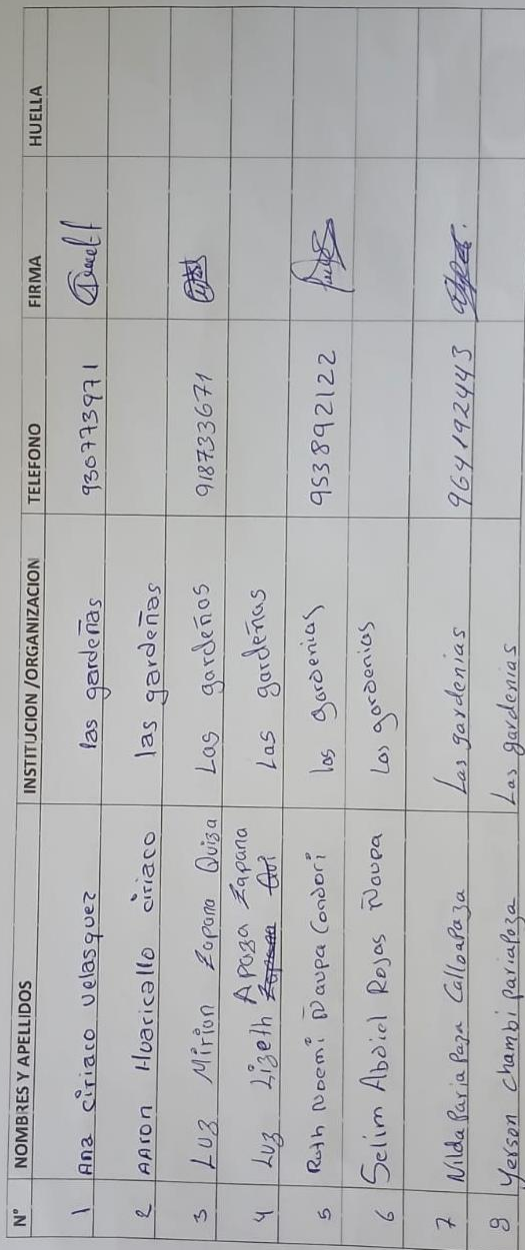 N° NOMBRES Y APELLIDOS INSTITUCION /ORGANIZACION TELEFONO FIRMA HUELLA
1 Ana Ciriaco Velasquez las gardeñas 930773971
2 AAron Huaricallo ciriaco las gardeñas
3 Luz Mirian Zapana Quiza Las gardeñas 918733671
4 Luz Lizeth Apaza Zapana Las gardeñas
5 Ruth Noemi Ñaupa Condori las gardenias 953892122
6 Selim Abdiel Rojas Ñaupa Las gardenias
7 Nilda Paria Paza Calloapaza Las gardenias 964192443
8 Yerson Chambi Pariapaza Las gardenias